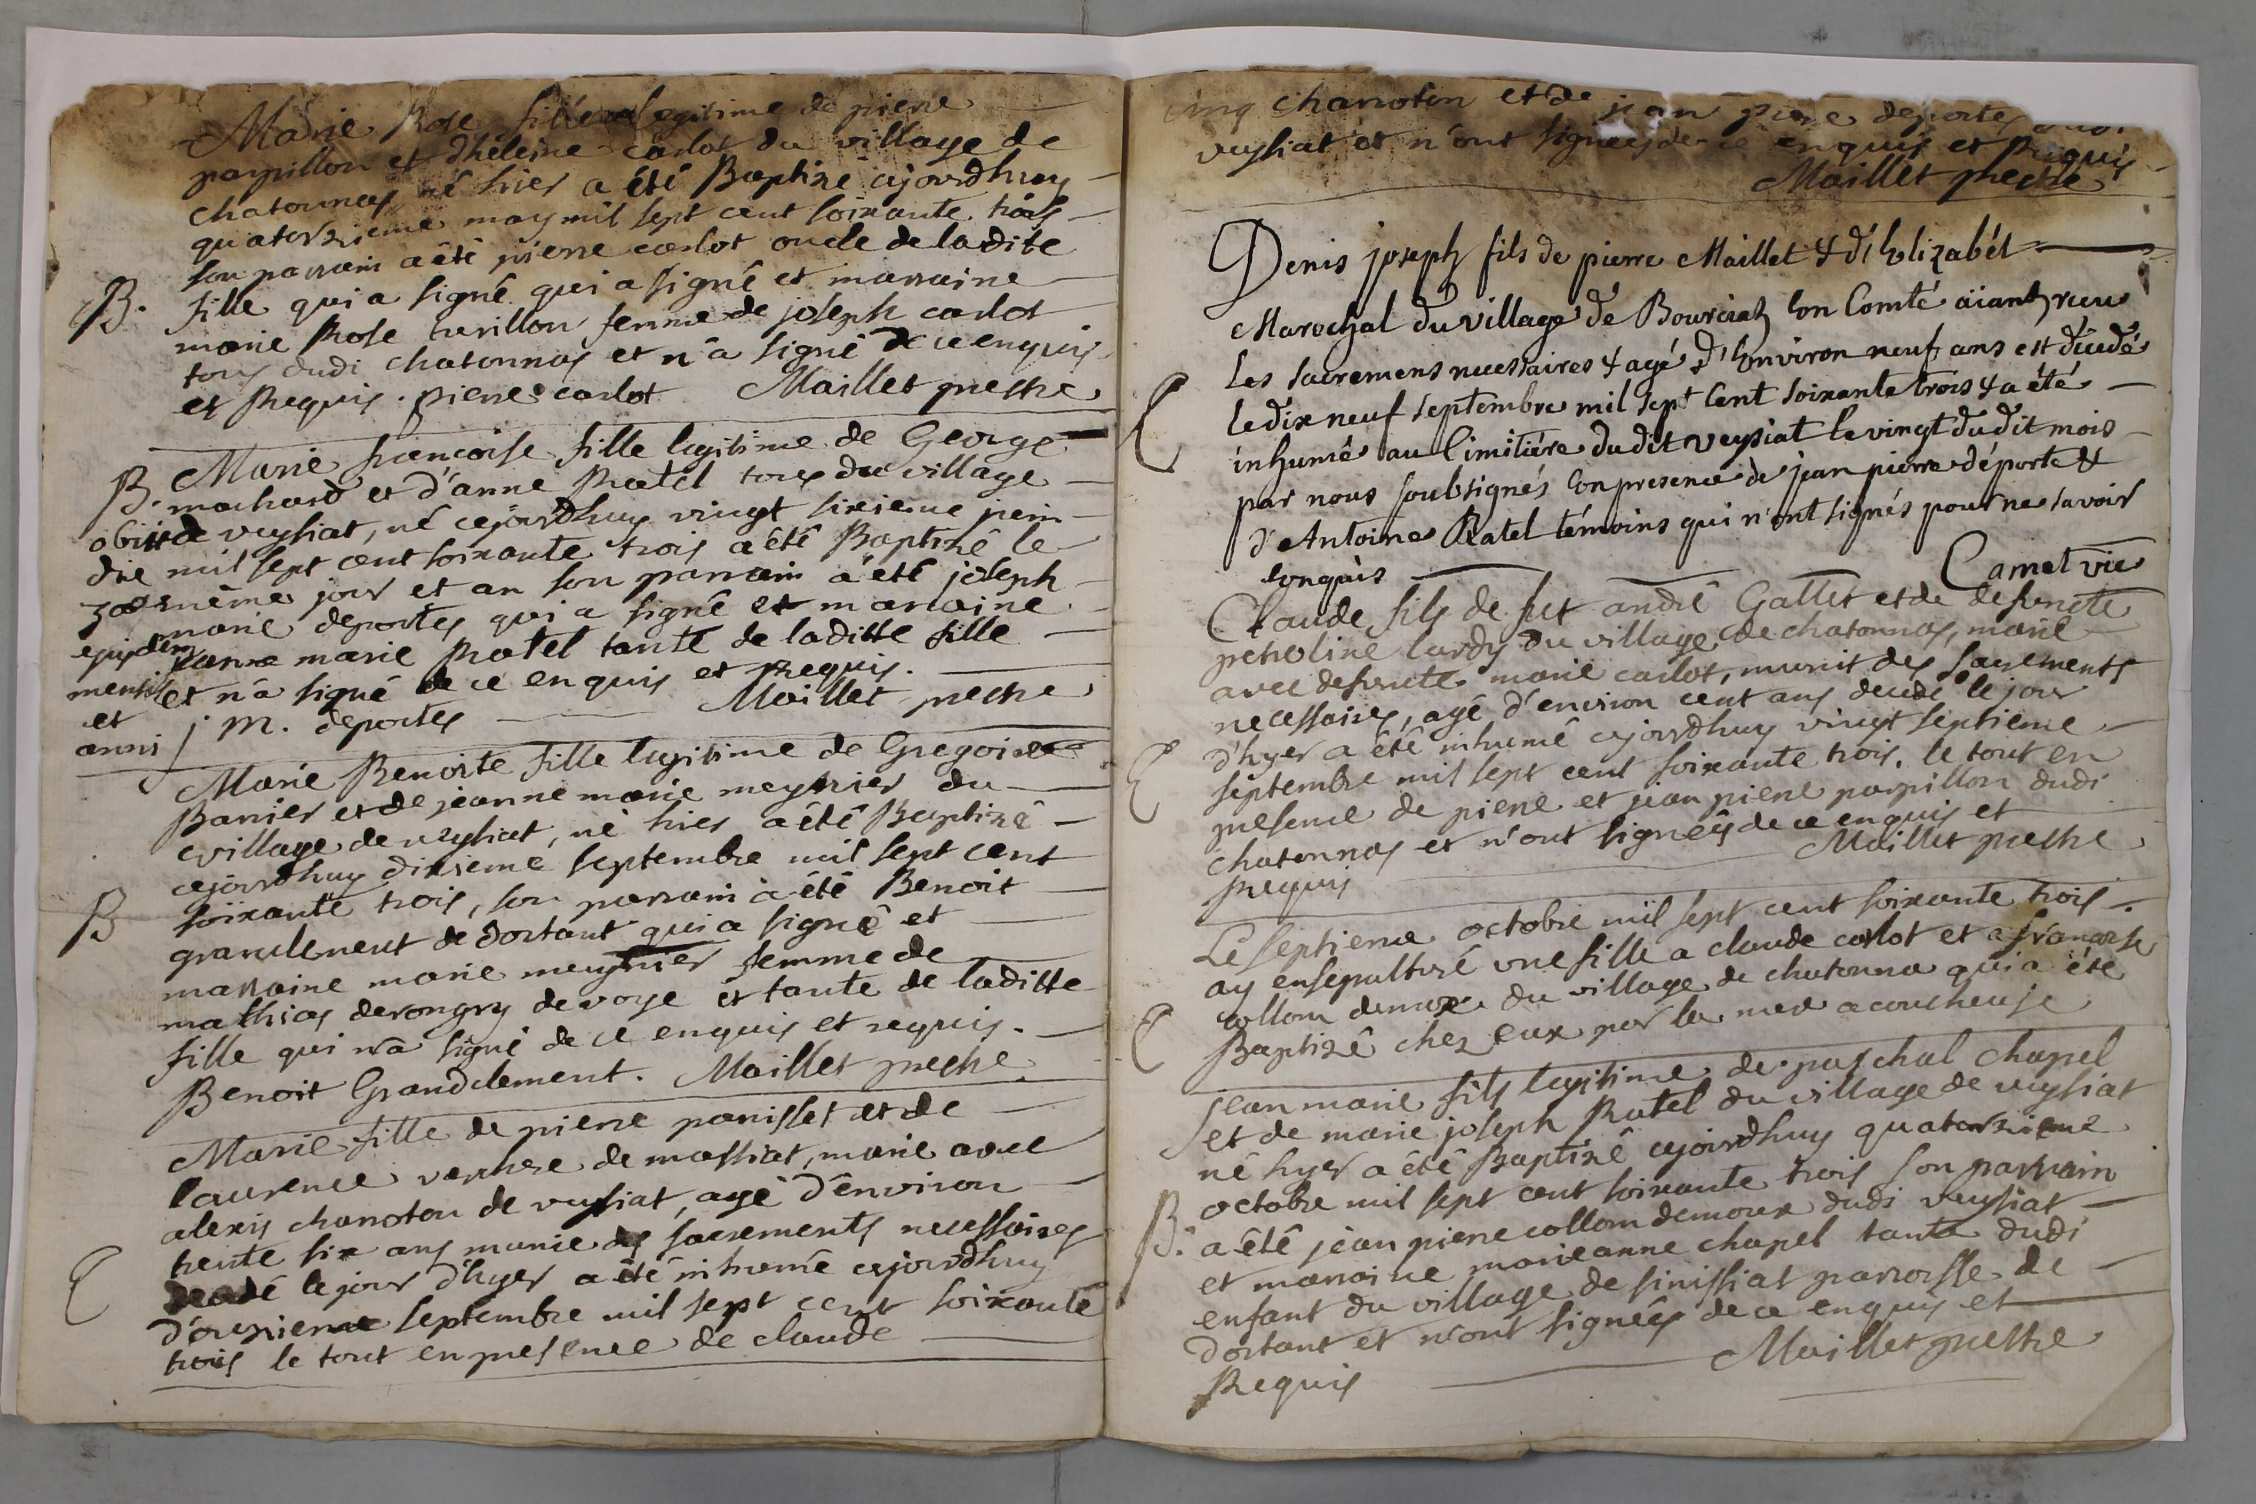 Marie Rose fille legitime de pierre
papillon et d'heleine carlot du village de
chatonnas né hier a été Baptizé ajourdhuy
quatorzieme may mil sept cent soixante trois
son parrain a été pierre carlot oncle de ladite
B. fille qui a signé qui a signé et marraine
marie Rose turillon femme de joseph carlot
tous dudi chatonnas et n'a signé de ce enquis
et Requis. pierre carlot Maillet prestre
Marie francoise fille legitime de George
B. mochard et d'anne Ratel tous du village
obiit de veysiat, né cejourdhuy vingt sixieme juin
die mil sept cent soixante trois a été Baptizé le
30 même jour et an son parrain a été joseph
marie deportes qui a signé et marraine
ejusdem anne marie Ratel tante de laditte fille
mensis et n'a signé de ce enquis et Requis.
et j m. deportes Maillet prestre
anni
Marie Benoite fille legitime de Gregoire
Banier et de jeanne marie meynier du
village de veysiat, né hier a été Baptizé
cejourdhuy dixieme septembre mil sept cent
B soixante trois, son parrain a été Benoit
grandclement de dortant qui a signé et
marraine marie meynier femme de
mathias derongry de voye et tante de laditte
fille qui n'a signé de ce enquis et requis.
Benoit Grandclement. Maillet prestre
Marie fille de pierre panisset et de
laurence de massiat, marié avec
alexis chanoton de veysiat, agé d'environ
trente six ans munie des sacrements necessaires
E decedé le jour d'hyer a été inhumé cejourdhuy
d'ouzieme septembre mil sept cent soixante
trois le tout en presence de claude
cinq chanoton et de jean piere deportes
veysiat et n'ont signées de ce enquis et Requis
Maillet prestre
Denis joseph fils de pierre Maillet & d'Elizabét
Marechal du village de Bourciat En Comté äiant reçu
les sacremens necessaires & agé d'Environ neuf ans est décédé
E le dix neuf septembre mil sept Cent soixante trois & a été
inhumé au Cimitiére du dit veysiat le vingt du dit mois
par nous soubsignés En presence de jean pierre déporte &
d'Antoine Ratel témoins qui n'ont signés pour ne savoir
enquis Camet vic
Claude fils de fut andré Gallet et de defuncte
petroline lardy du village de chatonnas, marié
avec defuncte marie carlot, munit des sacrements
necessaires, agé d'environ cent ans decedé le jour
E d'hyer a été inhumé cejourdhuy vingt septieme
septembre mil sept cent soixante trois. le tout en
presence de piere et jean piere papillon dudi
chatonnas et n'ont signéés de ce enquis et
Requis Maillet prestre
Le septieme octobre mil sept cent soixante trois.
ay ensepulturé une fille a claude carlot et a francoise
E collom demoux du village de chatonna qui a été
Baptizé chez eux par la mere acoucheuse
Jean marie fils legitime de paschal chapel
et de marie joseph Ratel du village de veysiat
né hyer a été Baptizé cejourdhuy quatorzieme
octobre mil sept cent soixante trois son parrain
B. a été jean piere collom demoux dudi veysiat
et marraine marie anne chapel tante dudi
enfant du village de sinissiat parroisse de
dortant et n'ont signéés de ce enquis et
Requis Maillet prestre